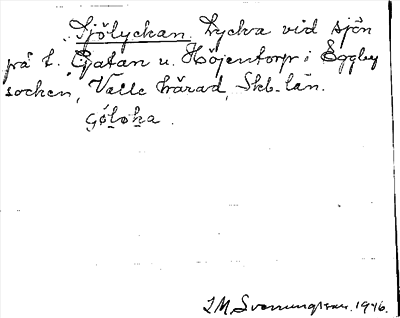 Sjölyckan. Lycka vid sjön
på t. Gatan u. Höjentorp i Eggby
socken, Valle härad, Skb. län.
ʂø̀lo̱ka.
J.M. Svenungsson. 1946.